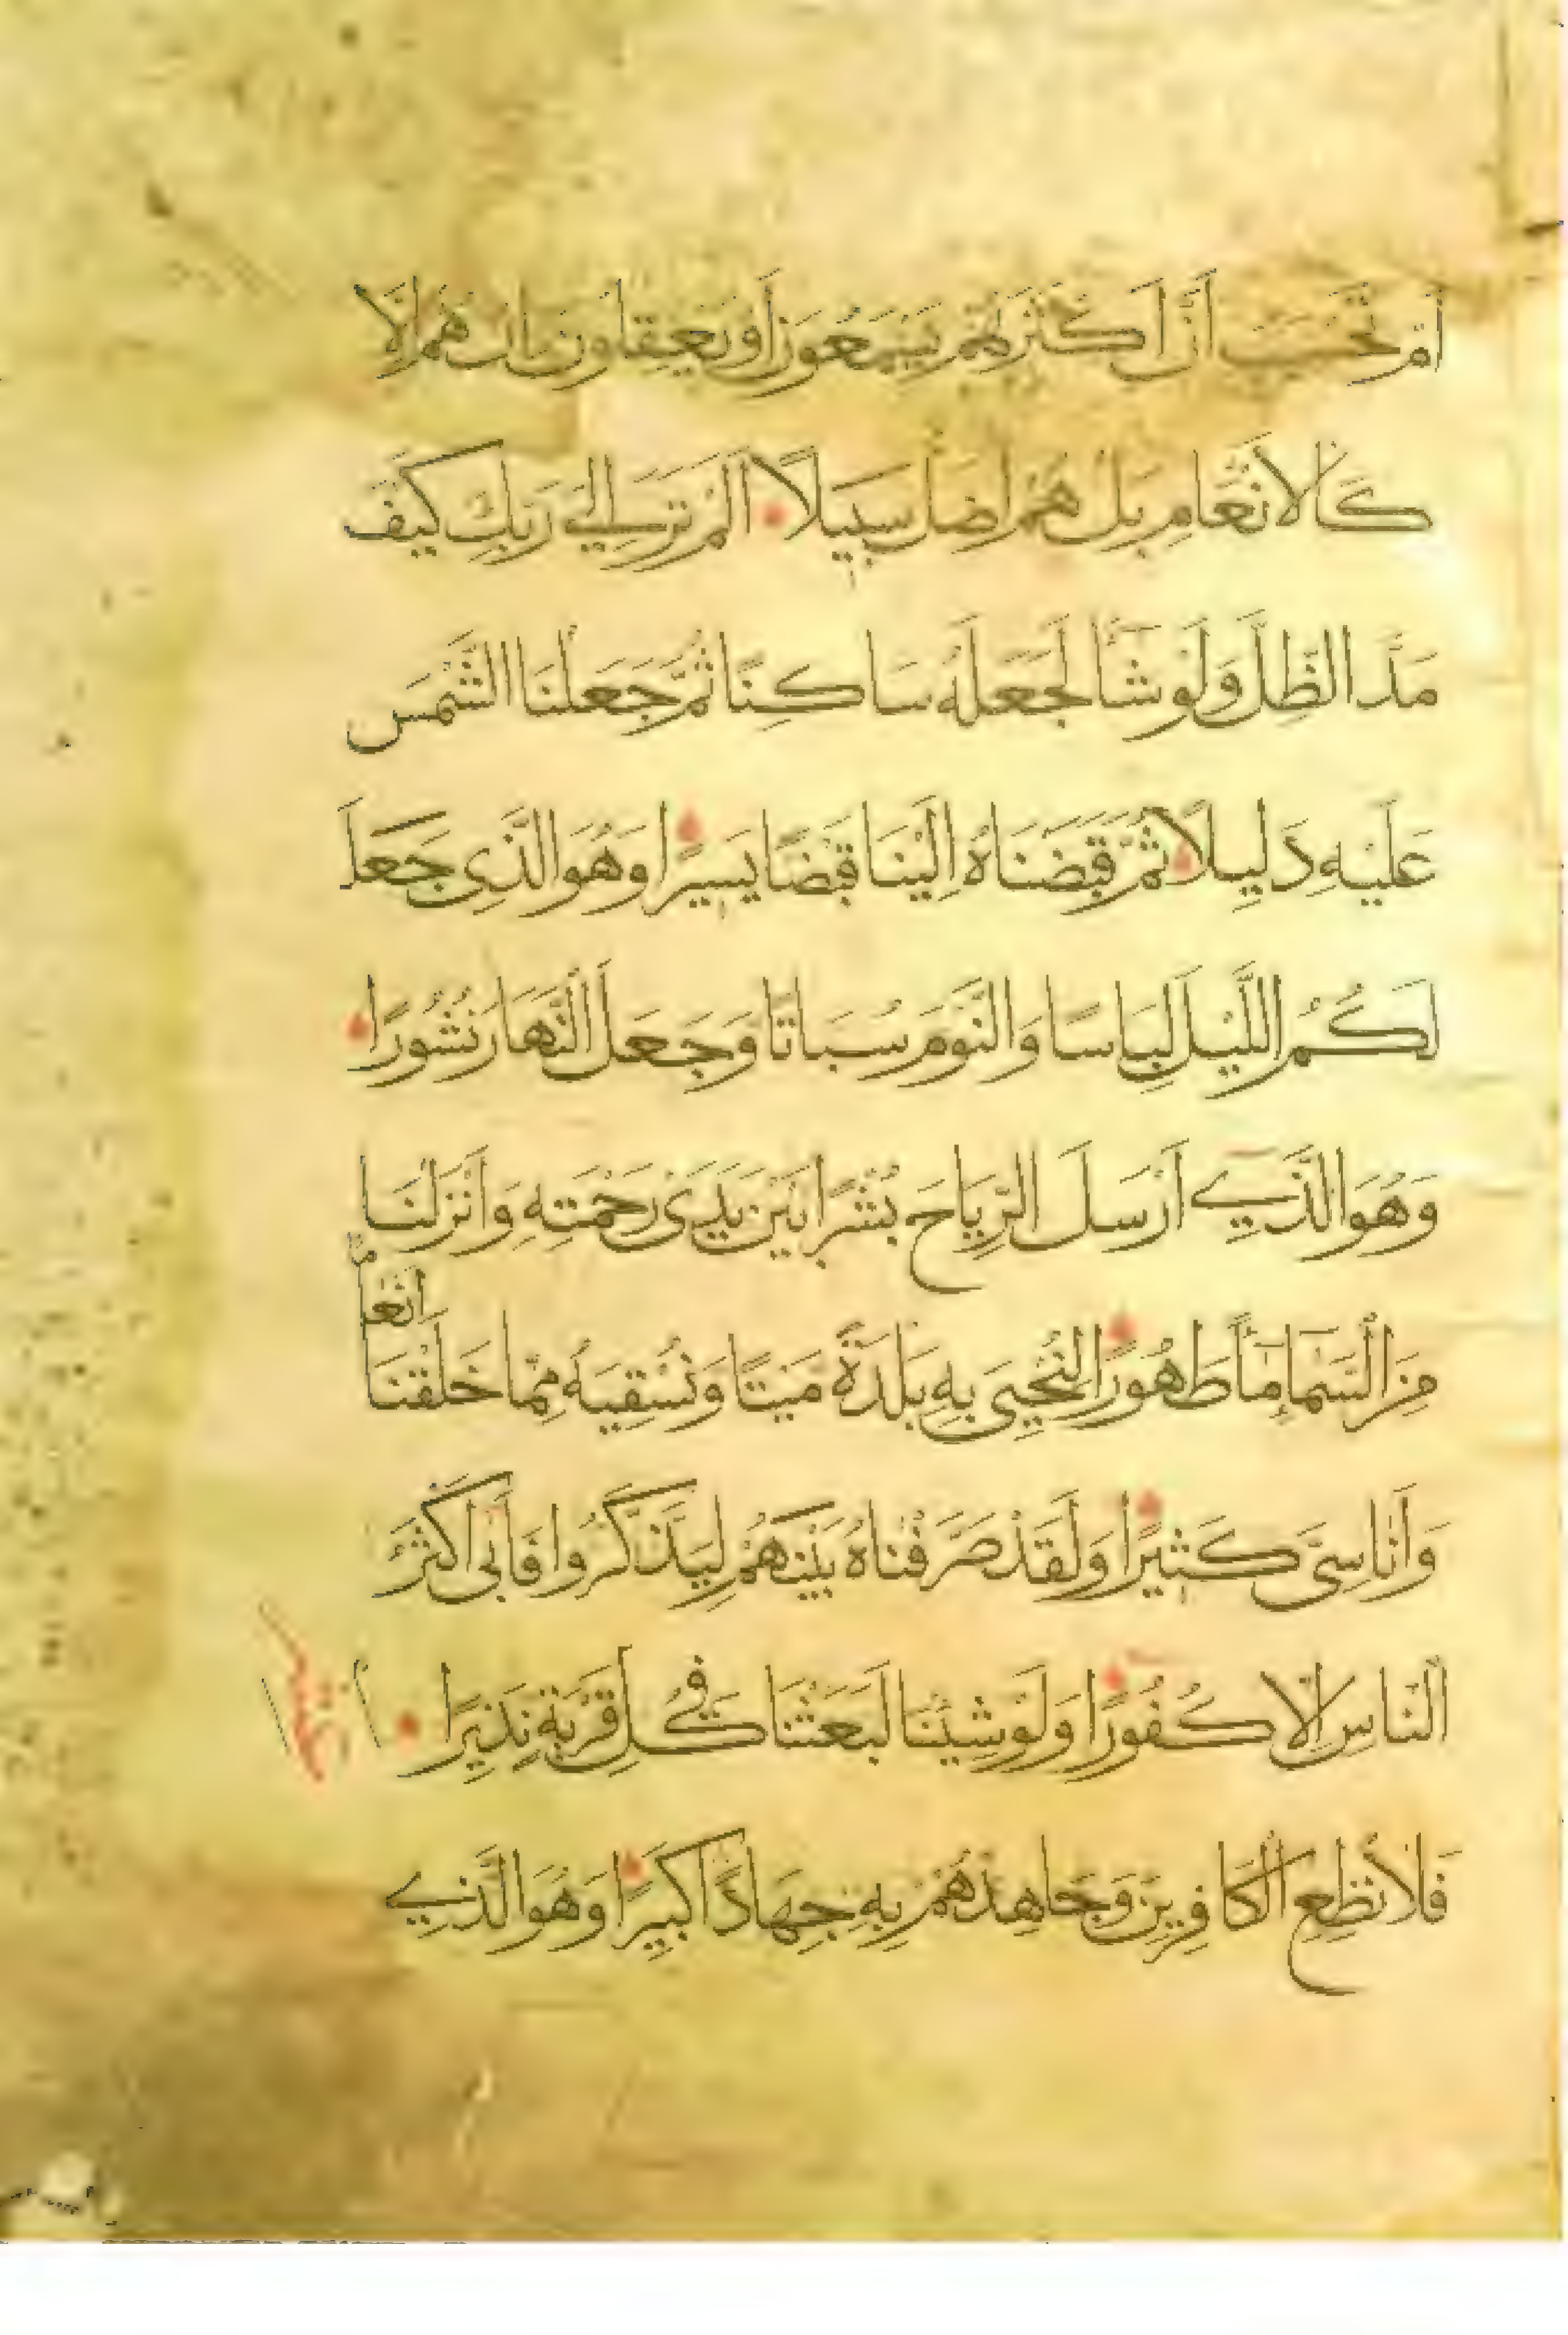 أَمْ تَحْسَبُ أَنَّ أَكْثَرَهُمْ يَسْمَعُونَ أَوْ يَعْقِلُونَ إِنْ هُمْ إِلَّا
كَالْأَنْعَامِ بَلْ هُمْ أَضَلُّ سَبِيلًا أَلَمْ تَرَ إِلَى رَبِّكَ كَيْفَ
مَدَّ الظِّلَّ وَلَوْ شَا لَجَعَلَهُ سَاكِنًا ثُمَّ جَعَلْنَا الشَّمْسَ
عَلَيْهِ دَلِيلًا ثُمَّ قَبَضْنَاهُ إِلَيْنَا قَبْضًا يَسِيرًا وَهُوَ الَّذِي جَعَلَ
لَكُمُ اللَّيْلَ لِبَاسًا وَالنَّوْمَ سُبَاتًا وَجَعَلَ النَّهَارَ نُشُورًا
وَهُوَ الَّذِي أَرْسَلَ الرِّيَاحَ بُشْرًا بَيْنَ يَدَيْ رَحْمَتِهِ وَأَنْزَلْنَا
مِنَ السَّمَا مَاً طَهُورًا لِنُحْيِيَ بِهِ بَلْدَةً مَيْتًا وَنُسْقِيَهُ مِمَّا خَلَقْنَا أَنْعَامًا
وَأَنَاسِيَّ كَثِيرًا وَلَقَدْ صَرَّفْنَاهُ بَيْنَهُمْ لِيَذَّكَّرُوا فَأَبَى أَكْثَرُ
النَّاسِ إِلَّا كُفُورًا وَلَوْ شِيْنَا لَبَعَثْنَا فِي كُلِّ قَرْيَةٍ نَذِيرًا
فَلَا تُطِعِ الْكَافِرِينَ وَجَاهِدْهُمْ بِهِ جِهَادًا كَبِيرًا وَهُوَ الَّذِي